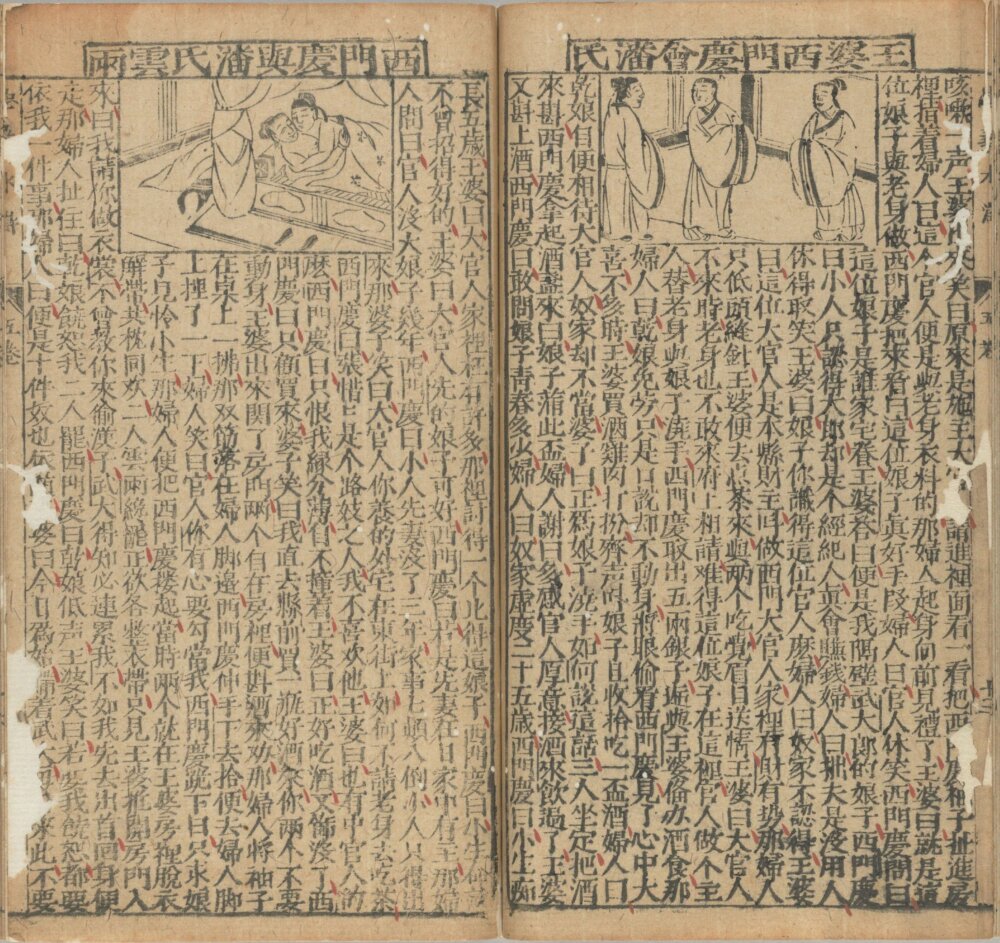 王婆西門慶會潘氏
咳嗽一声王婆笑曰原來是施主大官請進裡面看一看把西門慶袖子扯進房
裡指着婦人曰這个官人便是與老身衣料的那婦人起身向前見禮了王婆曰就是這
位娘子與老身做西門慶把來看曰這位娘子真好手段婦人曰官人休笑西門慶問曰
這位娘子是誰家宅眷王婆答曰便是我隔壁武大郎的娘子西門慶
曰小人只認得大郎却是个經紀人眞會賺錢婦人曰拙夫是没用人
休得取笑王婆曰娘子你識得這位官人麽婦人曰奴家不認得王婆
曰這位大官人是本縣財主叫做西門大官人家裡有財有埸那婦人
只低頭縫針王婆便去点茶來與两个吃覺眉目送情王婆曰大官人
不來時老身也不敢來府上相請难得這位娘子在這裡官人做个主
人替老身與娘子澆手西門慶取出五兩銀子遞與王婆俻办酒食那
婦人曰乾娘免劳只是口說却不動身將眼偷看西門慶見了心中大
喜不多時王婆買酒雞肉打扮齊声的娘子且收拾吃一盃酒婦人曰
乾娘自便相待大官人奴家却不當婆了曰正爲娘子澆手如何說這話三人坐定把酒
來斟西門慶拿起酒盞來曰娘子蒲此盃婦人謝曰多感官人厚意接酒來飲過了王婆
又斟上酒西門慶曰敢問娘子青春多少婦人曰奴家虛度二十五歲西門慶曰小生痴
西門慶與潘氏雲雨
長五歲王婆曰大官人家裡枉有許多那裡討得一个比得這娘子西門慶曰小生命薄
不曾招得好的王婆曰大官人先的娘子可好西門慶曰若是先妻在日家中有主那婦
人問曰官人没大娘子幾年西門慶曰小人先妻没了三年家事七顛八倒小人只得出
來那婆子笑曰大官人你養的外宅在東街上如何不請老身去吃茶
西門慶曰張惜惜是个路妓之人我不喜欢他王婆曰也有中官人的
麽西門慶曰只恨我緣分薄自不撞着王婆曰正好吃酒又篩没了西
門慶曰只顧買來婆子笑曰我直去縣前買一瓶好酒來你两个不要
動身王婆出來関了房門两个自在房裡便斟酒來劝那婦人將袖子
在桌上一拂那双筯落在婦人脚邊西門慶伸手下去拾便去婦人脚
上捏了一下婦人笑曰官人你有心要勾當我西門慶跪下曰只求娘
子見怜小生那婦人便把西門慶搂起當時两个就在王婆房裡脫衣
解帶共枕同欢二人雲雨纔罷正欲各整衣帶只見王婆推開房門入
來曰我請你做衣裳不曾教你來偷漢子武大得知必連累我不如我先去出首回身便
走那婦人扯住曰乾娘饒恕我二人罷西門慶曰乾娘低声王婆笑曰若要我饒恕都要
依我一件事那婦人曰便是十件奴也依婆曰今日爲始瞞着武來此不要
五卷